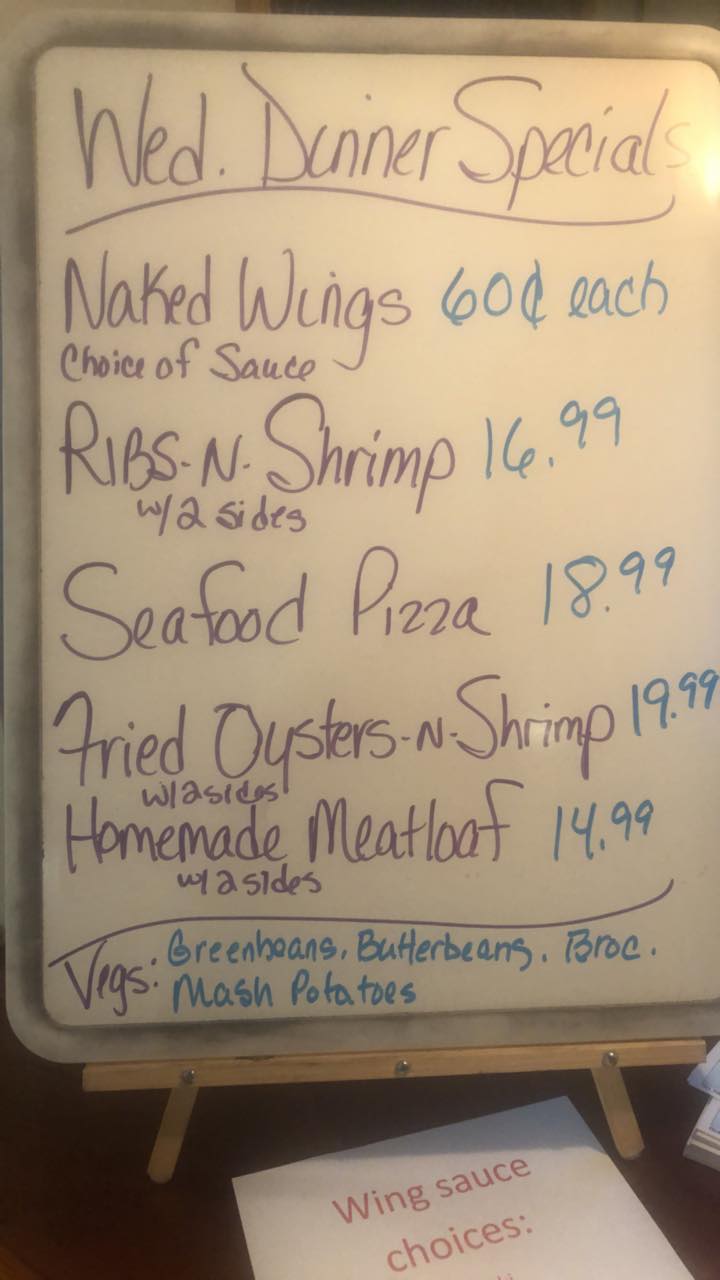 Wed. Dinner Specials
Naked Wings 60¢ each
Choice of Sauce
RIBS-N-Shrimp 16.99
w/2 sides
Seafood Pizza 18.99
Fried Oysters-N-Shrimp 19.99
w/2sides
Homemade Meatloaf 14.99
w/2sides
Vegs: Greenbeans, Butterbeans, Broc.
Mash Potatoes
Wing sauce
choices: